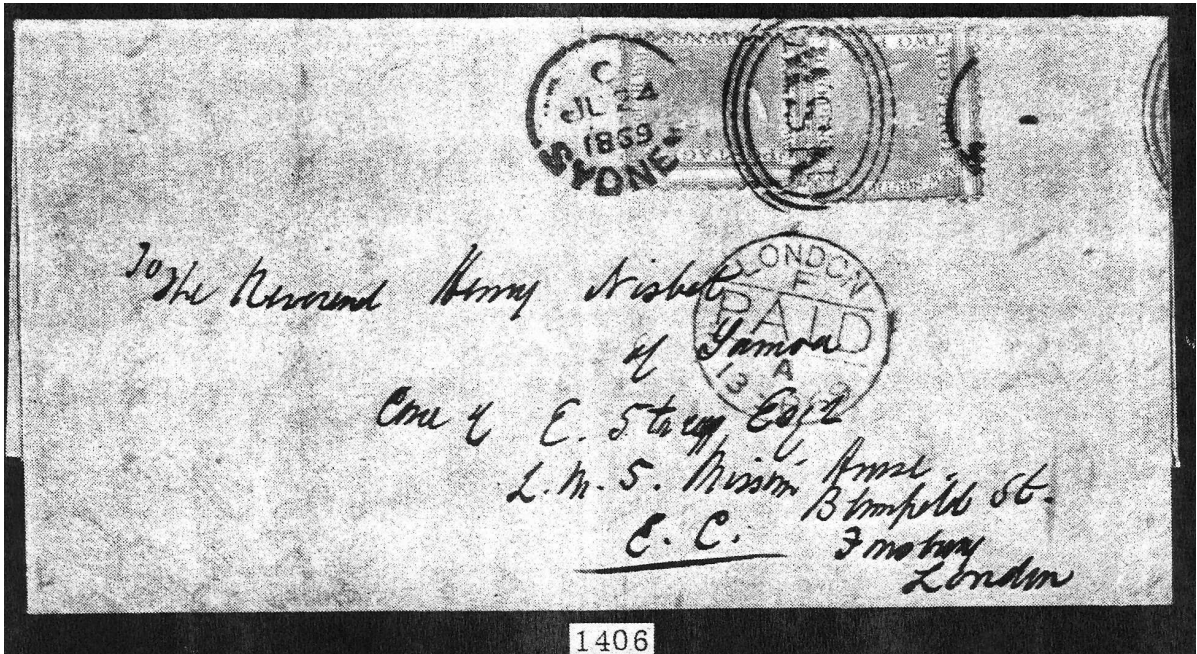 C
JL 24
1869
SYDNEY
NSW
TWO PE
POSTAGE
LONDON
F
PAID
A
13
To the Reverend Henry Nisbet
of Samoa
Care of E. Stacey Esqr
L. M. S. Mission House
Blomfield St.
E. C. Finsbury
London
1406